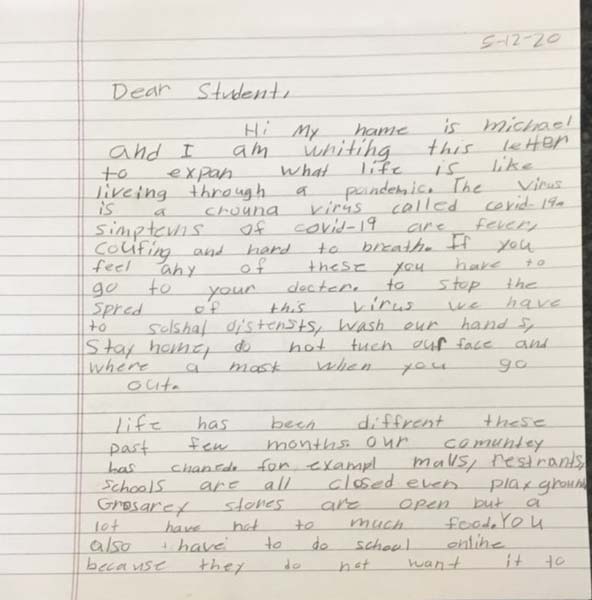 5-12-20
Dear Student,
Hi My name is michael
and I am whiting this letter
to expan what life is like
liveing through a pandemic. The virus
is a crouna virus called covid-19.
simptems of covid-19 are fever,
coufing and hard to breath. If you
feel any of these you have to
go to your docter. to stop the
spred of this virus we have
to solshal distensts, wash our hands,
Stay home, do not tuch our face and
where a mask when you go
out.
life has been diffrent these
past few months. our comuntey
has chaned. for exampl malls, restrants,
schools are all closed even playground
Grosarey stores are open but a
lot have not to much food. You
also have to do school online
because they do not want it to